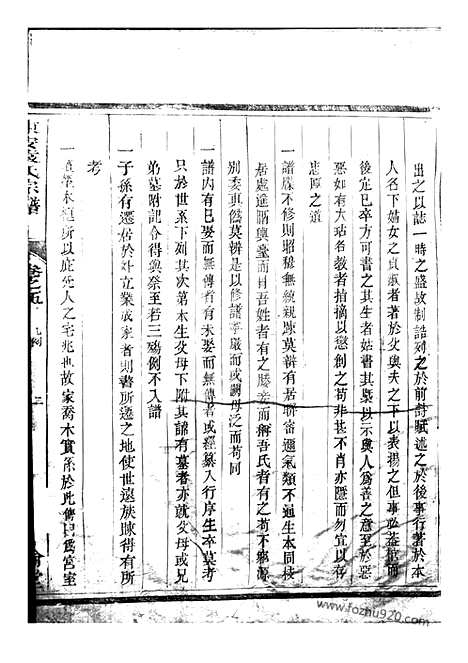 出之以誌一時之盛故制誥列之於前詩賦述之於後事行著於本
人名下婦女之貞淑者著於父與夫之下以表揚之但事必盡
後定已卒方可書之其生者姑書其槩以示與人為善之意至於惡
惡如有大玷名教者指摘以懲創之苟非甚不肖亦隱而勿宣以存
忠厚之道
一譜牒不修則昭穆無統親疎莫辨有居聯密邇氣類不通生本同枝
居處遙隔輿臺而目吾姓者有之賤妾而稱吾氏者有之苟不鄉源
別委真偽莫辨是以修譜寧嚴而或闕毋泛而苟同
一譜內有已娶而無傳者有未娶而無傳者或經纂入行序生卒莫考
只於世系下列其次第本生父母下附其諱有墓者亦就父母或兄
弟墓附記令得與祭至若三殤例不入譜
一子孫有遷居於外立業成家者則書所遷之地使世遠族疎得有所
考
一墳塋水道所以庇先人之宅兆也故家喬木實係於此傳曰為宮室
安凌氏宗譜
卷之五
www.fozhu920.com